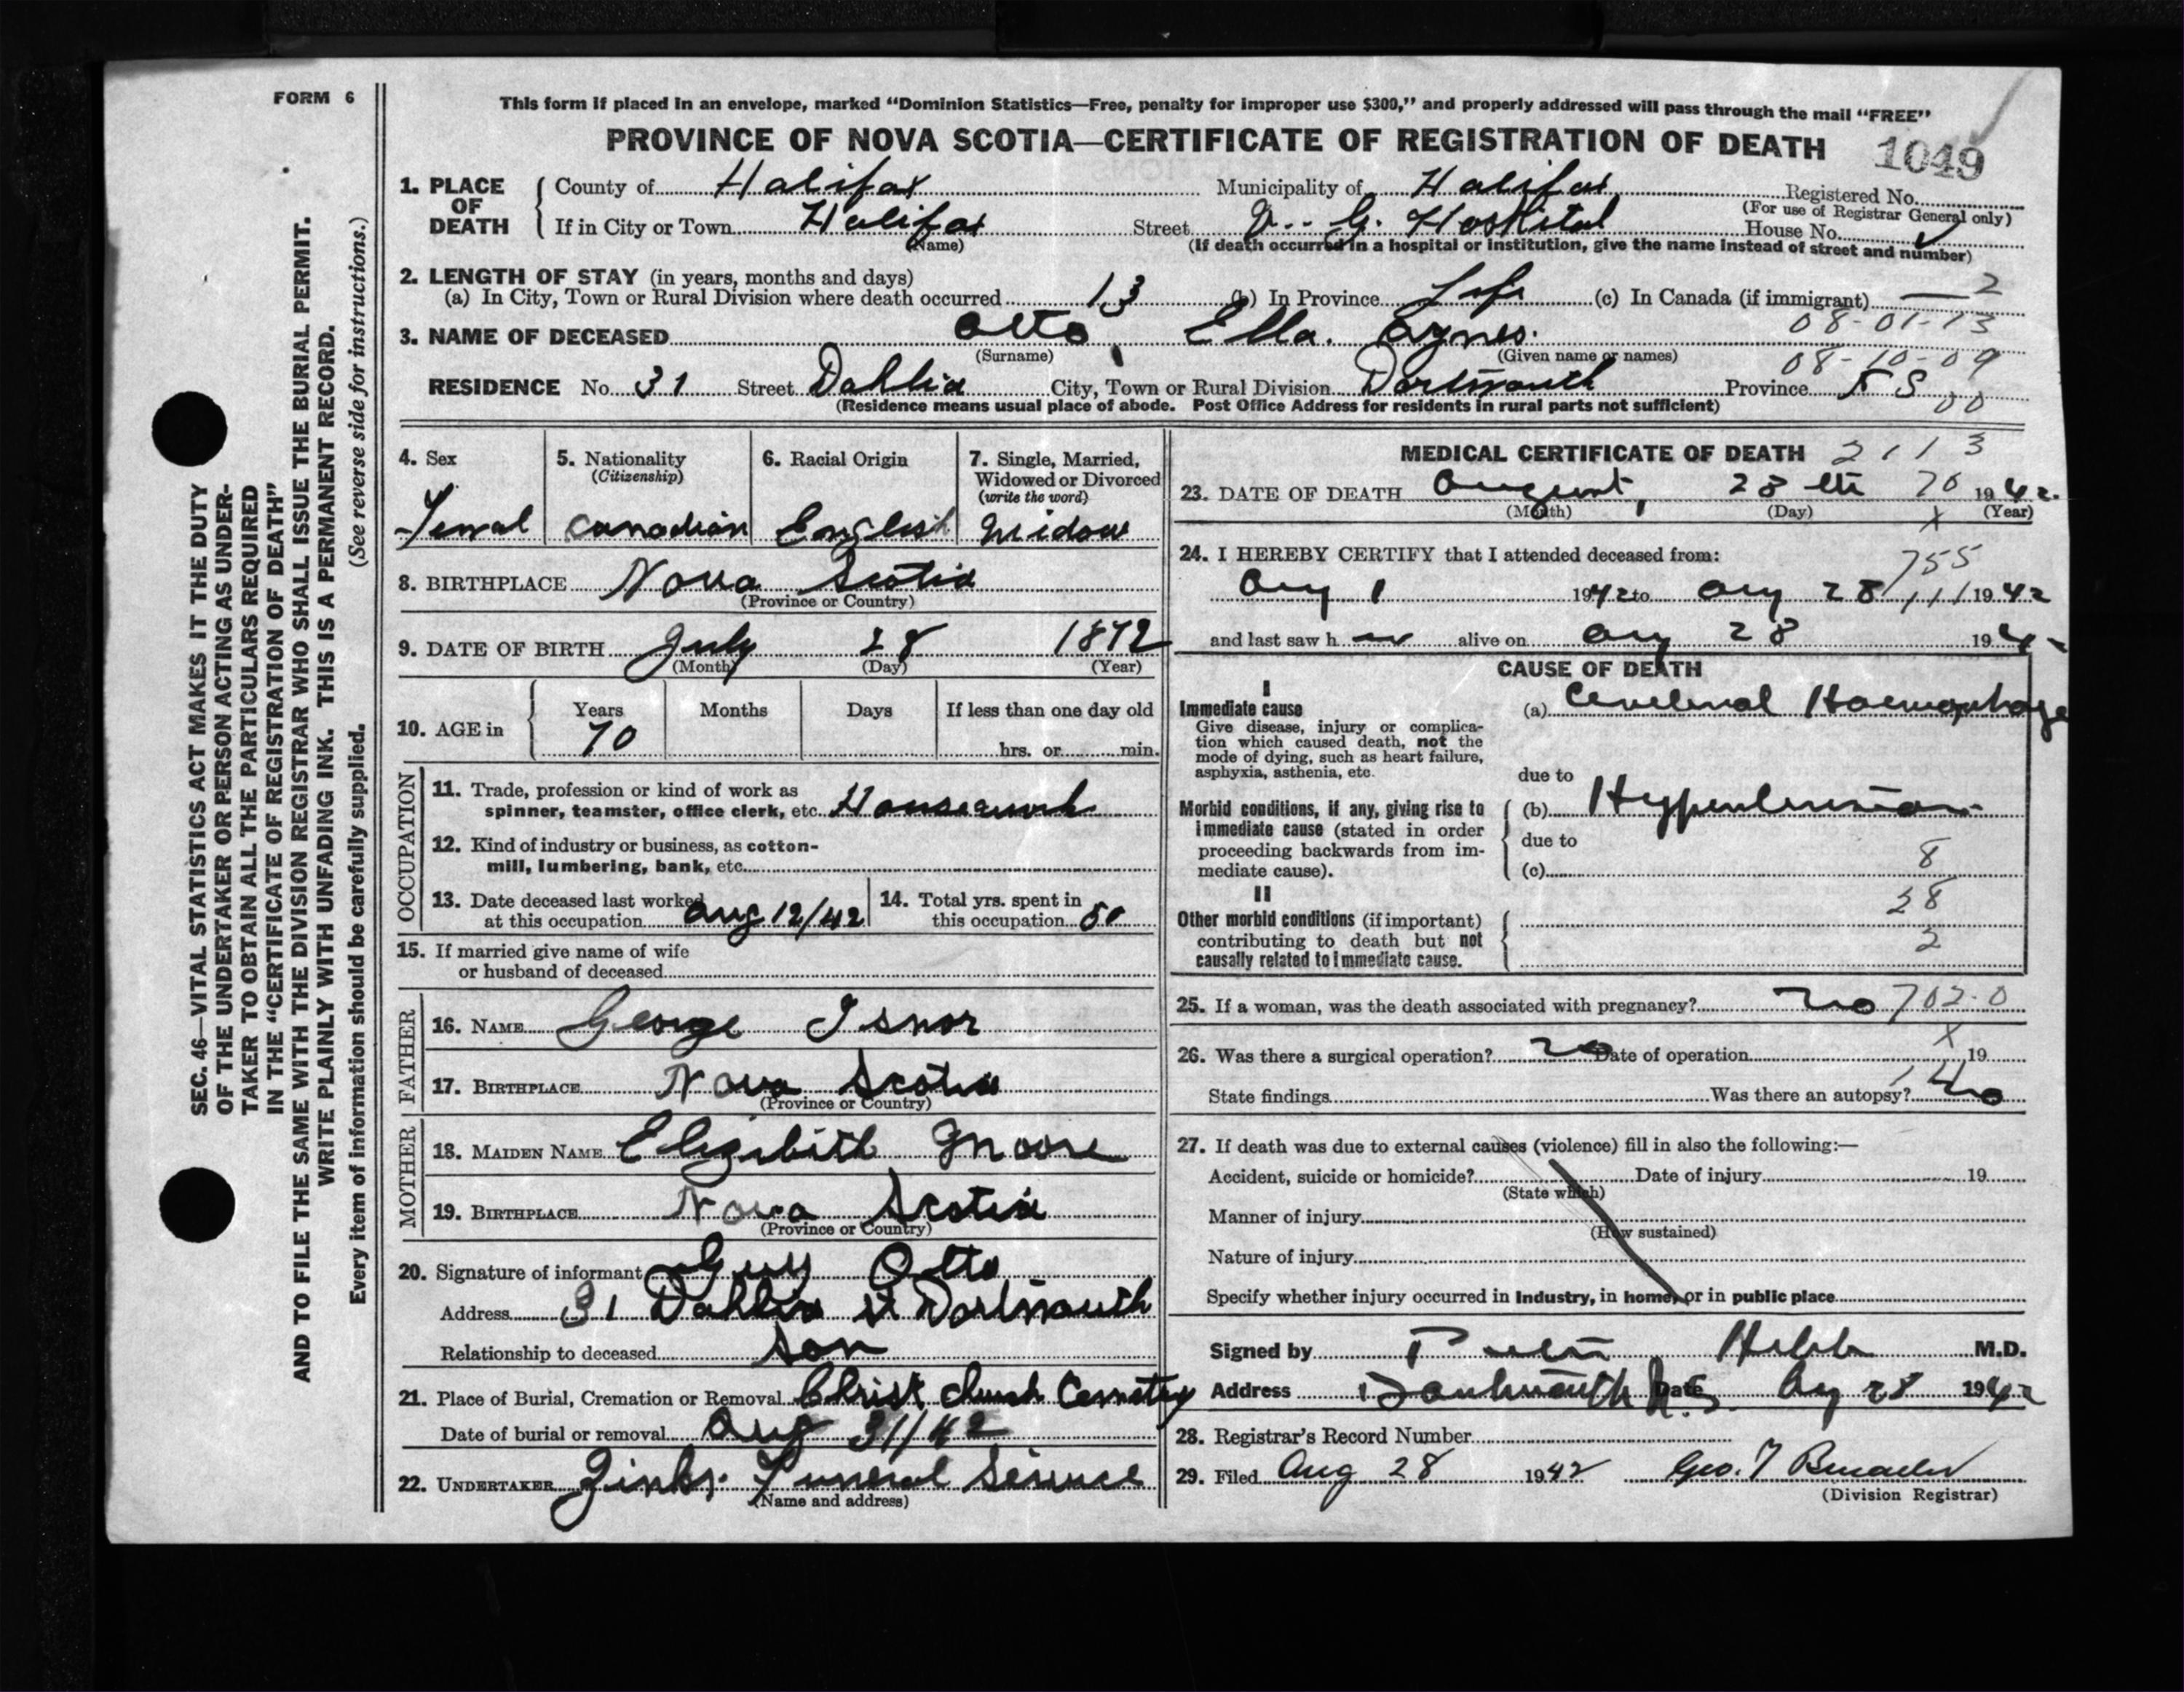 FORM 6
This form if placed in an envelope, marked “Dominion Statistics—Free, penalty for improper use $300,” and properly addressed will pass through the mail “FREE”
PROVINCE OF NOVA SCOTIA—CERTIFICATE OF REGISTRATION OF DEATH
1049
1. PLACE OF DEATH
County of Halifax Municipality of Halifax Registered No.
(For use of Registrar General only)
If in City or Town Halifax Street V. G. Hospital House No.
(Name) (If death occurred in a hospital or institution, give the name instead of street and number)
2. LENGTH OF STAY (in years, months and days)
(a) In City, Town or Rural Division where death occurred 13 (b) In Province Life (c) In Canada (if immigrant) — 2
08-01-13
3. NAME OF DECEASED Otto, Ella. Agnes.
(Surname) (Given name or names)
08-10-09
RESIDENCE No. 31 Street Dahlia City, Town or Rural Division Dartmouth Province N S
00
(Residence means usual place of abode. Post Office Address for residents in rural parts not sufficient)
4. Sex
Femal
5. Nationality
(Citizenship)
Canadian
6. Racial Origin
English
7. Single, Married,
Widowed or Divorced
(write the word)
Widow
8. BIRTHPLACE Nova Scotia
(Province or Country)
9. DATE OF BIRTH July 28 1872
(Month) (Day) (Year)
10. AGE in
Years Months Days If less than one day old
70 hrs. or min.
OCCUPATION
11. Trade, profession or kind of work as
spinner, teamster, office clerk, etc. Housework
12. Kind of industry or business, as cotton-
mill, lumbering, bank, etc.
13. Date deceased last worked
at this occupation Aug 12/42
14. Total yrs. spent in
this occupation 50
15. If married give name of wife
or husband of deceased
FATHER
16. NAME George Isnor
17. BIRTHPLACE Nova Scotia
(Province or Country)
MOTHER
18. MAIDEN NAME Elizibith Moore
19. BIRTHPLACE Nova Scotia
(Province or Country)
20. Signature of informant Guy Otto
Address 31 Dahlia St Dartmouth
Relationship to deceased Son
21. Place of Burial, Cremation or Removal Christ Church Cemetey
Date of burial or removal Aug 31/42
22. UNDERTAKER Zinks. Funeral Service
(Name and address)
MEDICAL CERTIFICATE OF DEATH 2113
23. DATE OF DEATH August, 28 th 70 1942.
(Month) (Day) (Year)
X
24. I HEREBY CERTIFY that I attended deceased from:
755
Aug 1 1942 to Aug 28 111 1942
and last saw h er alive on Aug 28 194
CAUSE OF DEATH
I
Immediate cause
Give disease, injury or complica-
tion which caused death, not the
mode of dying, such as heart failure,
asphyxia, asthenia, etc.
(a) Cerebral Haemorrhage
due to
Morbid conditions, if any, giving rise to
immediate cause (stated in order
proceeding backwards from im-
mediate cause).
(b) Hypertension
due to
(c)
8
II
28
Other morbid conditions (if important)
contributing to death but not
causally related to immediate cause.
2
25. If a woman, was the death associated with pregnancy? no 702-0
X
26. Was there a surgical operation? no Date of operation 19
State findings Was there an autopsy? no
27. If death was due to external causes (violence) fill in also the following:—
Accident, suicide or homicide? Date of injury 19
(State which)
Manner of injury
(How sustained)
Nature of injury
Specify whether injury occurred in Industry, in home, or in public place
Signed by Hebb M.D.
Address Dartmouth N.S. Date Aug 28 1942
28. Registrar's Record Number
29. Filed Aug 28 1942 Geo. T
(Division Registrar)
SEC. 46—VITAL STATISTICS ACT MAKES IT THE DUTY
OF THE UNDERTAKER OR PERSON ACTING AS UNDER-
TAKER TO OBTAIN ALL THE PARTICULARS REQUIRED
IN THE “CERTIFICATE OF REGISTRATION OF DEATH”
AND TO FILE THE SAME WITH THE DIVISION REGISTRAR WHO SHALL ISSUE THE BURIAL PERMIT.
WRITE PLAINLY WITH UNFADING INK. THIS IS A PERMANENT RECORD.
Every item of information should be carefully supplied. (See reverse side for instructions.)